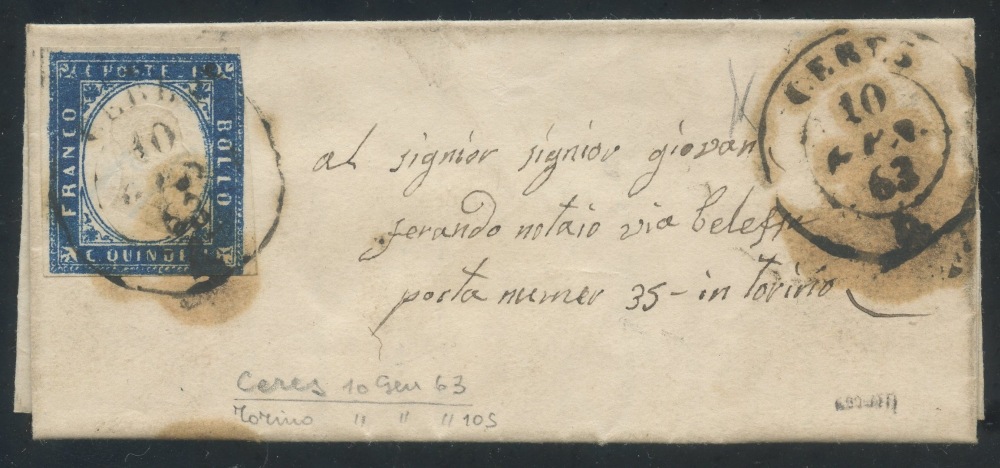 C. POSTE I
FRANCO
BOLLO
C. QUINDI
CERES
10
63
CERES
10
GEN
63
al signior signior giovan
ferando notaio via beleff
porta numer 35 - in torino
Ceres 10 Gen 63
Torino " " " 10S